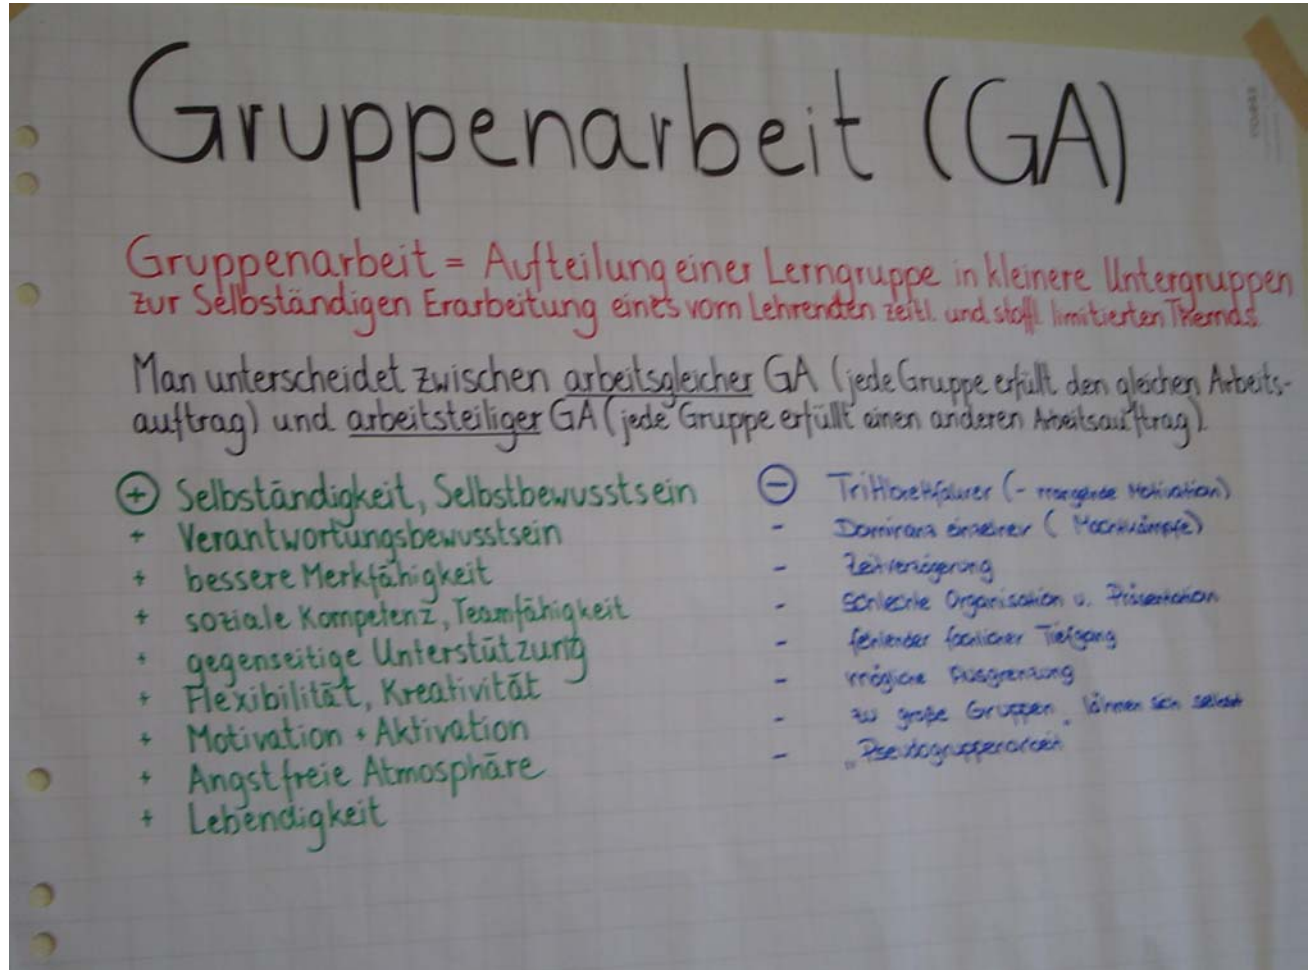 Gruppenarbeit (GA)
Gruppenarbeit = Aufteilung einer Lerngruppe in kleinere Untergruppen
zur Selbständigen Erarbeitung eines vom Lehrenden zeitl. und stoffl. limitierten Themas.
Man unterscheidet zwischen arbeitsgleicher GA (jede Gruppe erfüllt den gleichen Arbeits-
auftrag) und arbeitsteiliger GA (jede Gruppe erfüllt einen anderen Arbeitsauftrag).
+ Selbständigkeit, Selbstbewusstsein
+ Verantwortungsbewusstsein
+ bessere Merkfähigkeit
+ soziale Kompetenz, Teamfähigkeit
+ gegenseitige Unterstützung
+ Flexibilität, Kreativität
+ Motivation + Aktivation
+ Angstfreie Atmosphäre
+ Lebendigkeit
- Trittbrettfahrer (- mangelnde Motivation)
- Dominanz einzelner (Machtkämpfe)
- Zeitverzögerung
- Schlechte Organisation u. Präsentation
- fehlender fachlicher Tiefgang
- mögliche Ausgrenzung
- zu große Gruppen
- "Pseudogruppenarbeit"